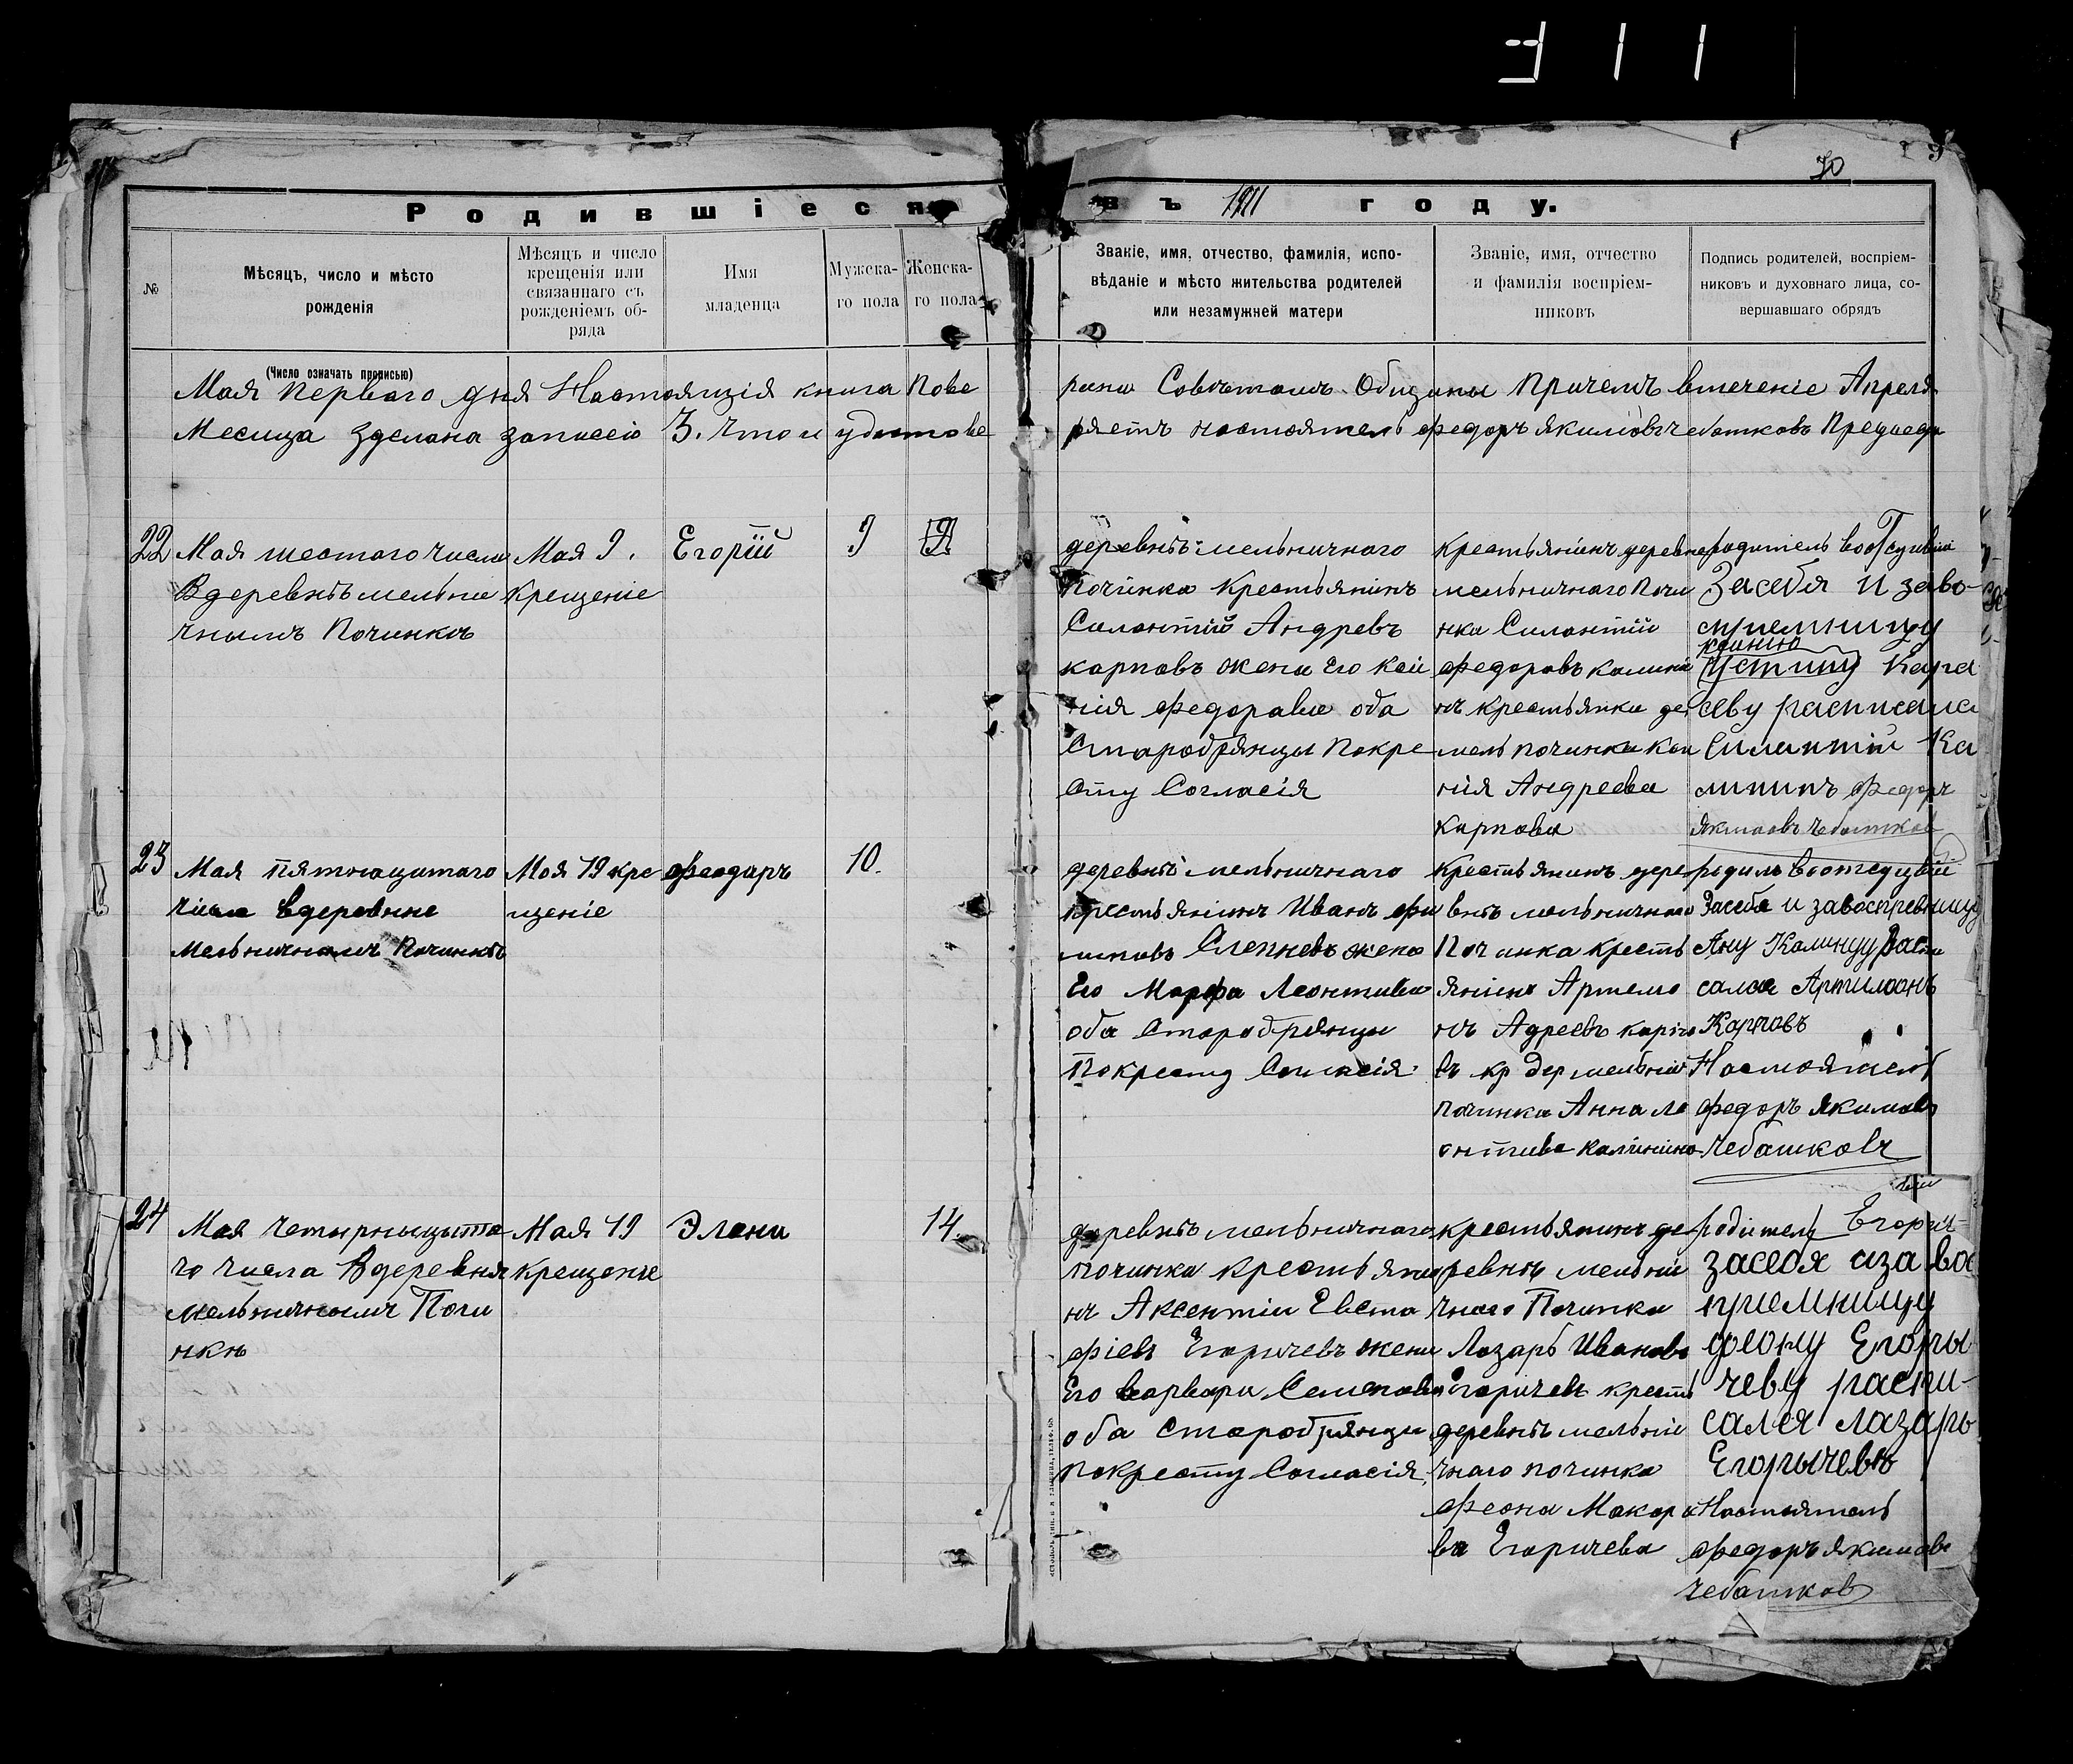 311
70
Родившіеся въ 1911 году.
№
Мѣсяцъ, число и мѣсто
рожденія
Мѣсяцъ и число
крещенія или
связаннаго съ
рожденіемъ об-
ряда
Имя
младенца
Мужска-
го пола
Женска-
го пола
Званіе, имя, отчество, фамилія, испо-
вѣданіе и мѣсто жительства родителей
или незамужней матери
Званіе, имя, отчество
и фамилія воспріем-
никовъ
Подпись родителей, воспріем-
никовъ и духовнаго лица, со-
вершавшаго обрядъ
(Число означать прописью)
Мая перваго дня Настоящія книга Пове рина Совѣтомъ Общины Причемъ втеченіе Апреля
Месеца зделана записею 3. что и удостове ряетъ настоятель федоръ якимовъ чебатковъ
22
Мая шестаго числа
Вдеревнѣ мельни
чнымъ Починкѣ
Мая 9.
Крещеніе
Егорій
9
деревнѣ мельничнаго
починка крестьянинъ
Силантій Андревъ
карповъ жена Его Ксе
нія федорава оба
Старобрянцы Покре
сту Согласія
крестьянинъ деревне
мельничнаго почи
нка Силантій
федоровъ калини
нъ крестьянка де
мель починка Ксе
нія Андреева
карпова
родитель
За себя И заво-
сприемницу
ксению
Устину Кара
севу расписалса
Силантій Ка
лининъ федоръ
якимовъ чебатков
23
Мая пятнацатаго
числа вдеревне
мельничнымъ Починкѣ
Мая 19 кре
щеніе
Феодаръ
10.
деревнѣ мельничнаго
крестьянинъ Иванъ фи
липовъ Слепневъ жена
Его Марфа Леонтива
оба Старобрянцы
Покресту Согласія
Крестьянинъ дере
внѣ мельничнаго
Починка кресть
янинъ Артемо
нъ Адреевъ карпо
въ кр дер мельни
починка Анна ле
онтива калинина
засебя и завоспревницу
Ану Калинцу Распи
салса Артимонъ
Карповъ
Настоятель
федоръ якимовъ
Чебатковъ
24
Мая четырныцыта
го числа Вдеревня
мельничнымъ Почи
нкѣ
Мая 19
крещенье
Элена
14.
деревнѣ мельничнаго
починка крестьяни
нъ Аксентіи Евста
фіевъ Егоричевъ жена
Его варвара Семенова
оба старобрянцы
покресту Согласія
крестьянинъ де
ревнѣ мельни
чнаго Починка
Лазарь Иванов
Егоричевъ крестья
деревнѣ мельни
чнаго починка
феона Макаро
ва Егоричева
родитель Егори-
засебя иза во
приемницу
феону Егоры-
чеву распи-
салея лазарь
Егорычевъ
Настоятель
федоръ якимовъ
чебатков